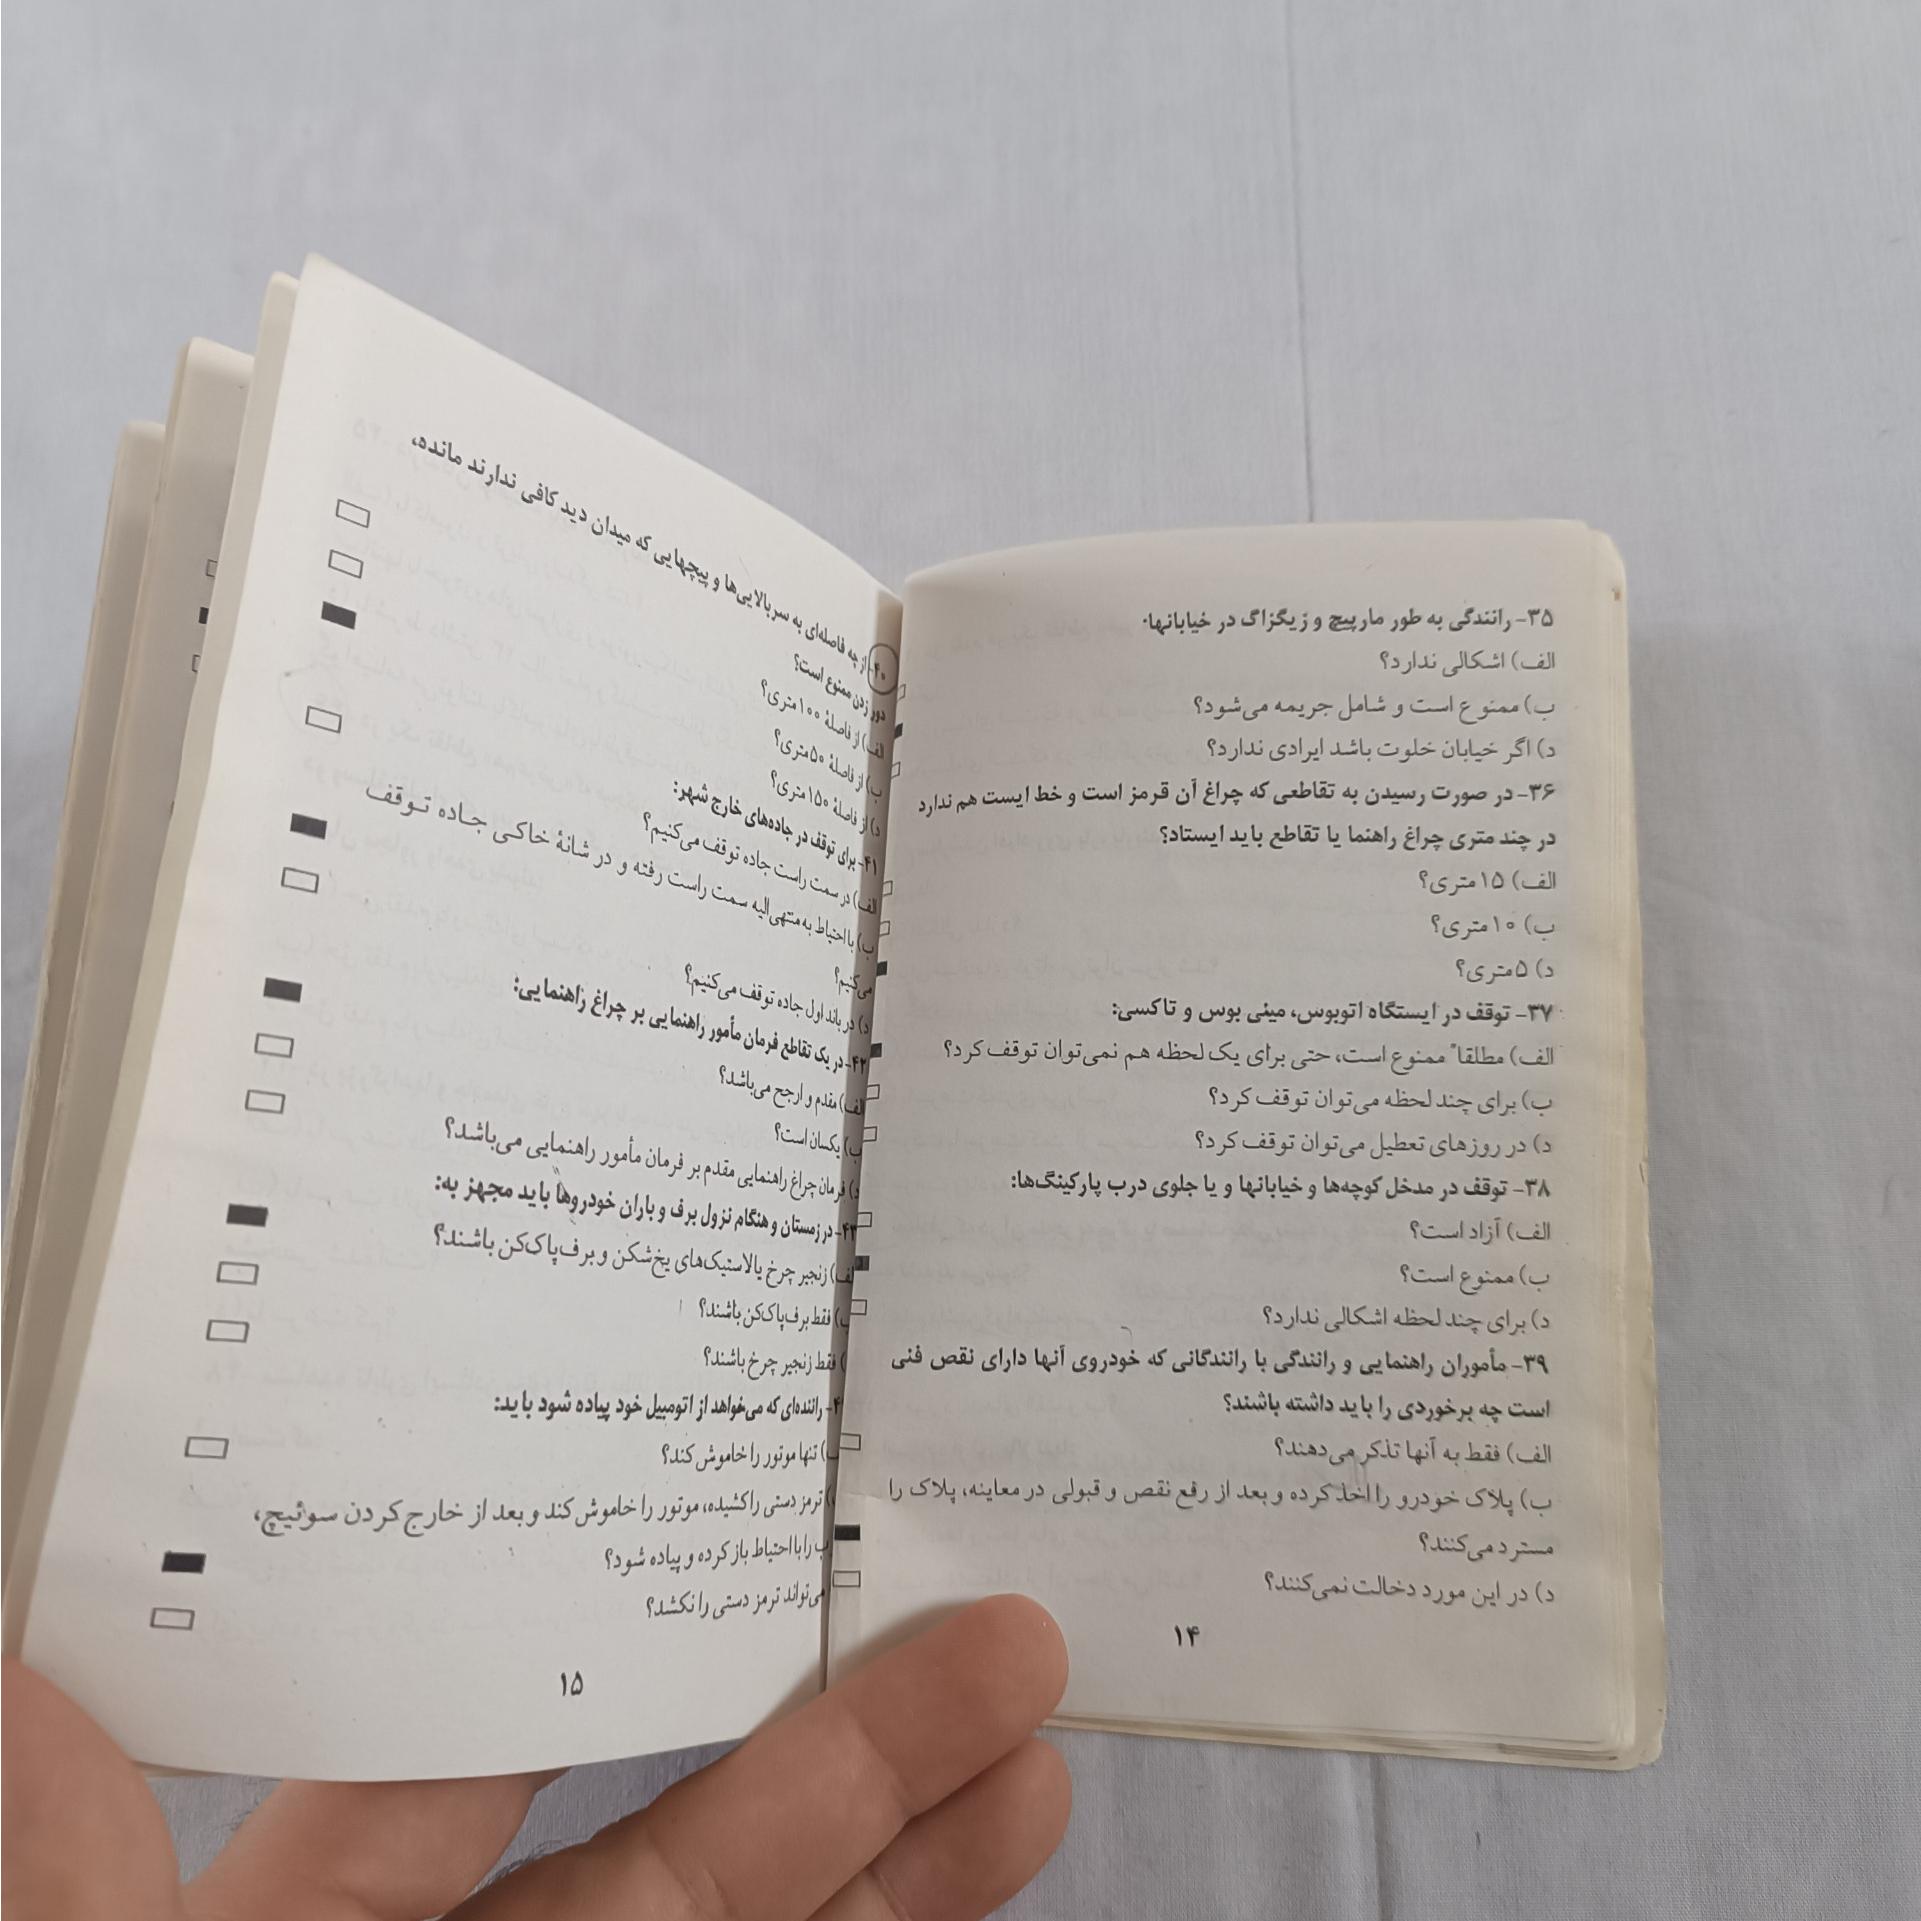 ۳۵- رانندگی به طور مارپیچ و زیگزاگ در خیابانها.
الف) اشکالی ندارد؟
ب) ممنوع است و شامل جریمه می‌شود؟
د) اگر خیابان خلوت باشد ایرادی ندارد؟
۳۶- در صورت رسیدن به تقاطعی که چراغ آن قرمز است و خط ایست هم ندارد
در چند متری چراغ راهنما یا تقاطع باید ایستاد؟
الف) ۱۵ متری؟
ب) ۱۰ متری؟
د) ۵ متری؟
۳۷- توقف در ایستگاه اتوبوس، مینی بوس و تاکسی:
الف) مطلقاً ممنوع است، حتی برای یک لحظه هم نمی‌توان توقف کرد؟
ب) برای چند لحظه می‌توان توقف کرد؟
د) در روزهای تعطیل می‌توان توقف کرد؟
۳۸- توقف در مدخل کوچه‌ها و خیابانها و یا جلوی درب پارکینگ‌ها:
الف) آزاد است؟
ب) ممنوع است؟
د) برای چند لحظه اشکالی ندارد؟
۳۹- مأموران راهنمایی و رانندگی با رانندگانی که خودروی آنها دارای نقص فنی
است چه برخوردی را باید داشته باشند؟
الف) فقط به آنها تذکر می‌دهند؟
ب) پلاک خودرو را اخذ کرده و بعد از رفع نقص و قبولی در معاینه، پلاک را
مسترد می‌کنند؟
د) در این مورد دخالت نمی‌کنند؟
۱۴
۴۰- از چه فاصله‌ای به سربالایی‌ها و پیچهایی که میدان دید کافی ندارند مانده،
دور زدن ممنوع است؟
الف) از فاصلهٔ ۱۰۰ متری؟
ب) از فاصلهٔ ۵۰ متری؟
د) از فاصلهٔ ۱۵۰ متری؟
۴۱- برای توقف در جاده‌های خارج شهر:
الف) در سمت راست جاده توقف می‌کنیم؟
ب) با احتیاط به منتهی‌الیه سمت راست رفته و در شانهٔ خاکی جاده توقف
می‌کنیم؟
د) در باند اول جاده توقف می‌کنیم؟
۴۲- در یک تقاطع فرمان مأمور راهنمایی بر چراغ راهنمایی:
الف) مقدم و ارجح می‌باشد؟
ب) یکسان است؟
د) فرمان چراغ راهنمایی مقدم بر فرمان مأمور راهنمایی می‌باشد؟
۴۳- در زمستان و هنگام نزول برف و باران خودروها باید مجهز به:
الف) زنجیر چرخ یا لاستیک‌های یخ‌شکن و برف‌پاک‌کن باشند؟
ب) فقط برف‌پاک‌کن باشند؟
فقط زنجیر چرخ باشند؟
راننده‌ای که می‌خواهد از اتومبیل خود پیاده شود باید:
تنها موتور را خاموش کند؟
ترمز دستی را کشیده، موتور را خاموش کند و بعد از خارج کردن سوئیچ،
را با احتیاط باز کرده و پیاده شود؟
می‌تواند ترمز دستی را نکشد؟
۱۵